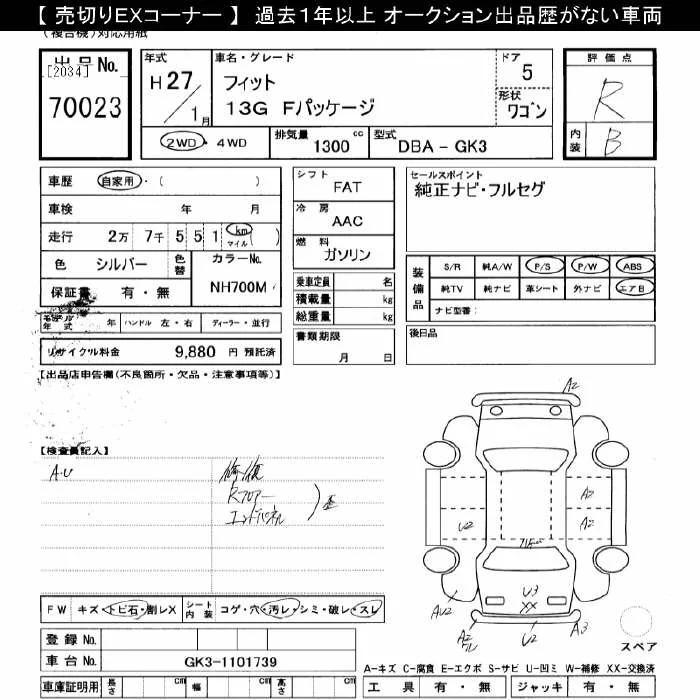 【 売切りEXコーナー 】 過去1年以上 オークション出品歴がない車両
(複合機)対応用紙
出品No.
[2034]
70023
年式
H27/1月
車名・グレード
フィット
13G Fパッケージ
ドア
5
形状
ワゴン
2WD・4WD
排気量 1300 cc
型式 DBA-GK3
評価点
R
内装 B
車歴 自家用・( )
車検 年 月
走行 2万 7千 5 5 1 km マイル ( )
色 シルバー 色替 カラーNo. NH700M
保証書 有・無
モデル年式 年 ハンドル 左・右 ディーラー・並行
リサイクル料金 9,880 円 預託済
シフト FAT
冷房 AAC
燃料 ガソリン
乗車定員 名
積載量 kg
総重量 kg
書類期限
月 日
セールスポイント
純正ナビ・フルセグ
装備品 S/R 純A/W P/S P/W ABS
純TV 純ナビ 革シート 外ナビ エアB
ナビ型番:
後日品
【出品店申告欄(不良箇所・欠品・注意事項等)】
【検査員記入】
A・U
修復
Rフロアー
エンドパネル
歴
A2
A2
A2
U2
U3
XX
AU2
A2
U2
A3
スペア
FW キズ・トビ石・割レX シート内装 コゲ・穴・汚レ・シミ・破レ・スレ
登録 No.
車台 No. GK3-1101739
車庫証明用 長さ cm 幅 cm 高さ cm
A-キズ C-腐食 E-エクボ S-サビ U-凹ミ W-補修 XX-交換済
工具 有・無 ジャッキ 有・無